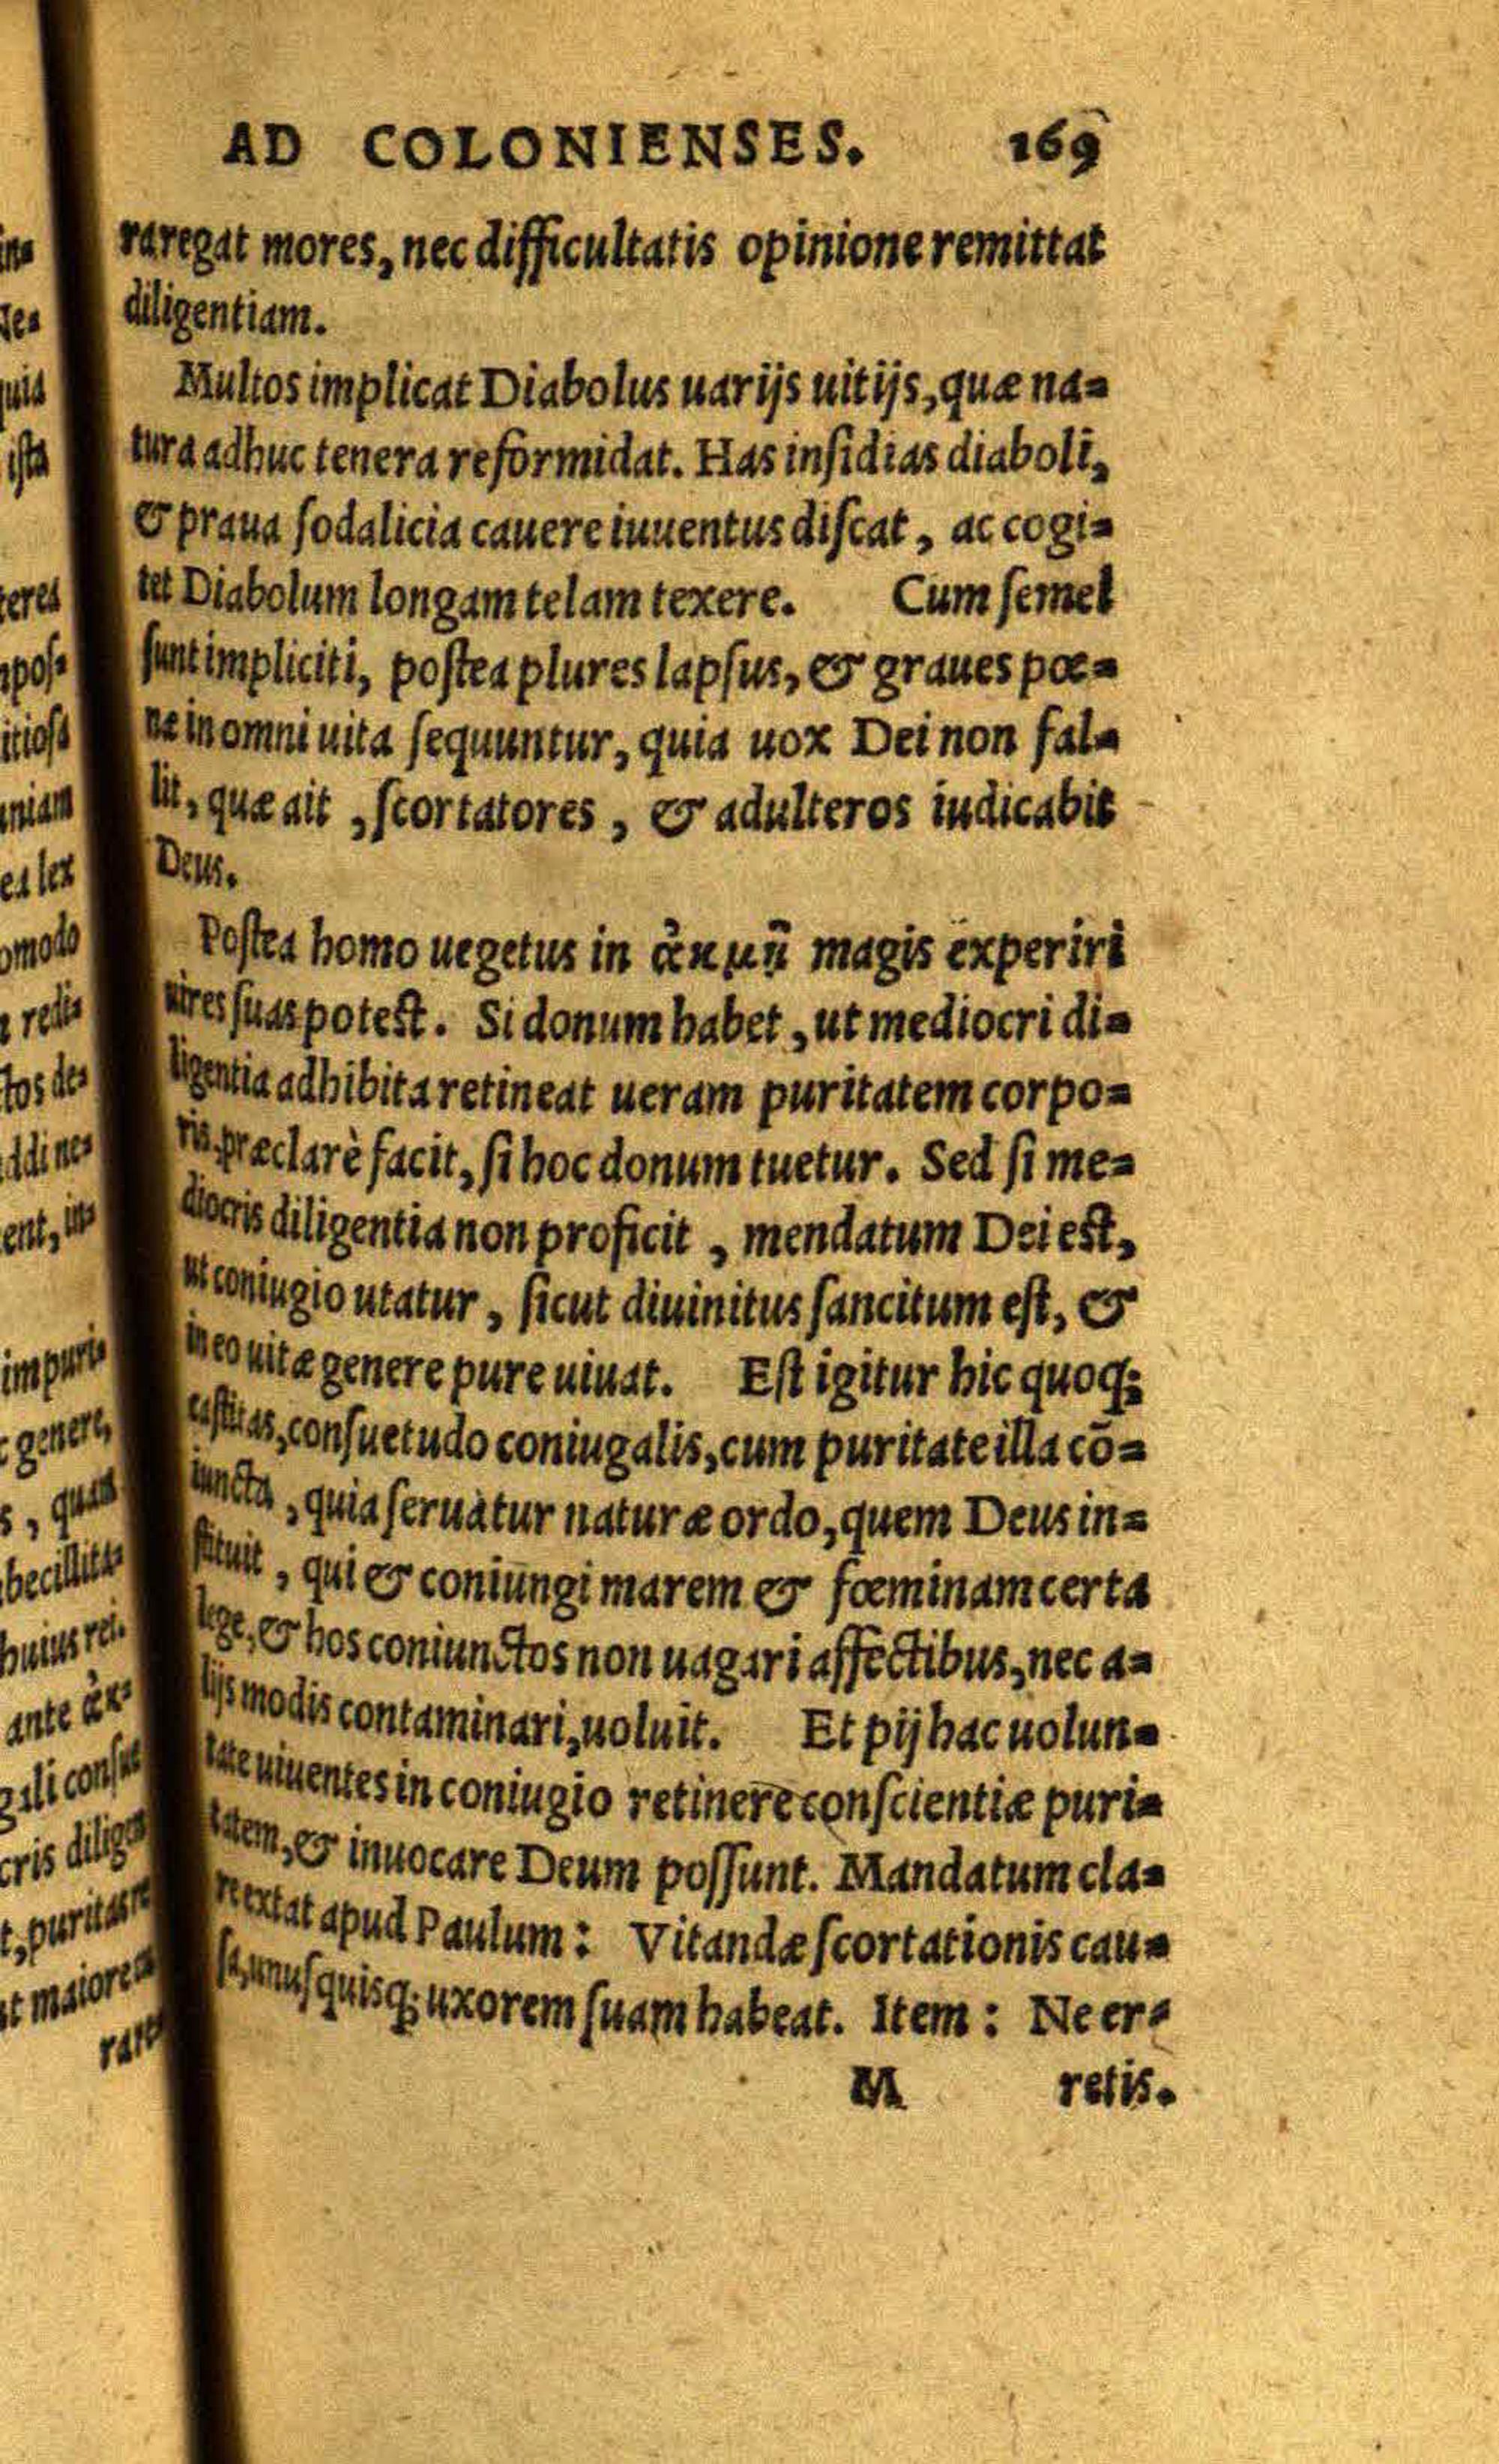 AD COLONIENSES. 169
ra regat mores, nec difficultatis opinione remittat
diligentiam.
Multos implicat Diabolus uarijs uitijs, quæ na-
tura adhuc tenera reformidat. Has inſidias diaboli,
& praua ſodalicia cauere iuuentus diſcat, ac cogi-
tet Diabolum longam telam texere. Cum ſemel
ſunt impliciti, poſtea plures lapſus, & graues pœ-
næ in omni uita ſequuntur, quia uox Dei non fal-
lit, quæ ait, ſcortatores, & adulteros iudicabit
Deus.
Poſtea homo uegetus in ἀκμῇ magis experiri
uires ſuas poteſt. Si donum habet, ut mediocri di-
ligentia adhibita retineat ueram puritatem corpo-
ris, præclarè facit, ſi hoc donum tuetur. Sed ſi me-
diocris diligentia non proficit, mendatum Dei eſt,
ut coniugio utatur, ſicut diuinitus ſancitum eſt, &
in eo uitæ genere pure uiuat. Eſt igitur hic quoq;
caſtitas, conſuetudo coniugalis, cum puritate illa cō-
iuncta, quia ſeruatur naturæ ordo, quem Deus in-
ſtituit, qui & coniungi marem & fœminam certa
lege, & hos coniunctos non uagari affectibus, nec a-
lijs modis contaminari, uoluit. Et pij hac uolun-
tate uiuentes in coniugio retinere conſcientiæ puri-
tatem, & inuocare Deum poſſunt. Mandatum cla-
re extat apud Paulum: Vitandæ ſcortationis cau-
ſa, unuſquisq; uxorem ſuam habeat. Item: Ne er-
M retis.